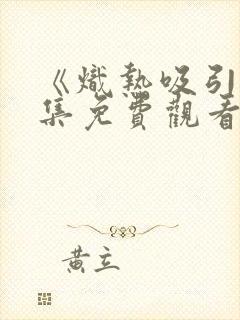 《熾熱吸引
集免費觀看
黃立